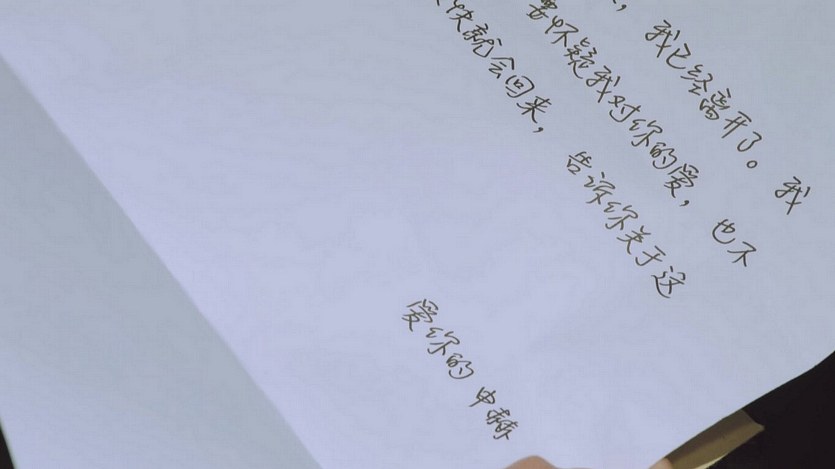 ，我已经离开了。我
要怀疑我对你的爱，也不
快就会回来，告诉你关于这
爱你的 申赫